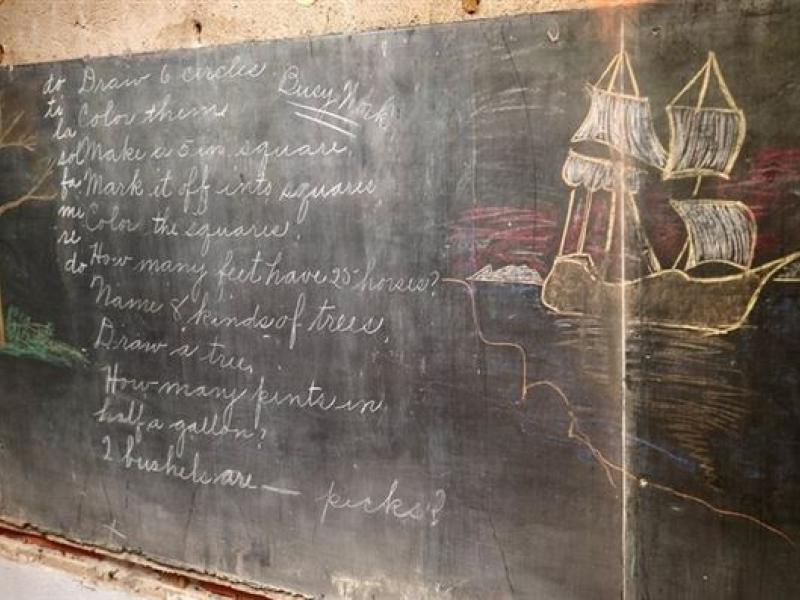 do Draw 6 circles Busy Work
ti Color them
la
sol Make a 5 in square.
fa Mark it off into squares
mi Color the squares.
re
do How many feet have 25 horses?
Name 8 kinds of trees.
Draw a tree.
How many pints in
half a gallon?
2 bushels are — picks?